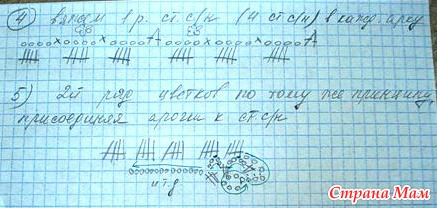 4 вяжем 1 р. ст. с/н (4 ст с/н) в кажд. арку
5) 2й ряд цветков по тому же принципу,
присоединяя арочки к ст. с/н
и т д
Страна Мам